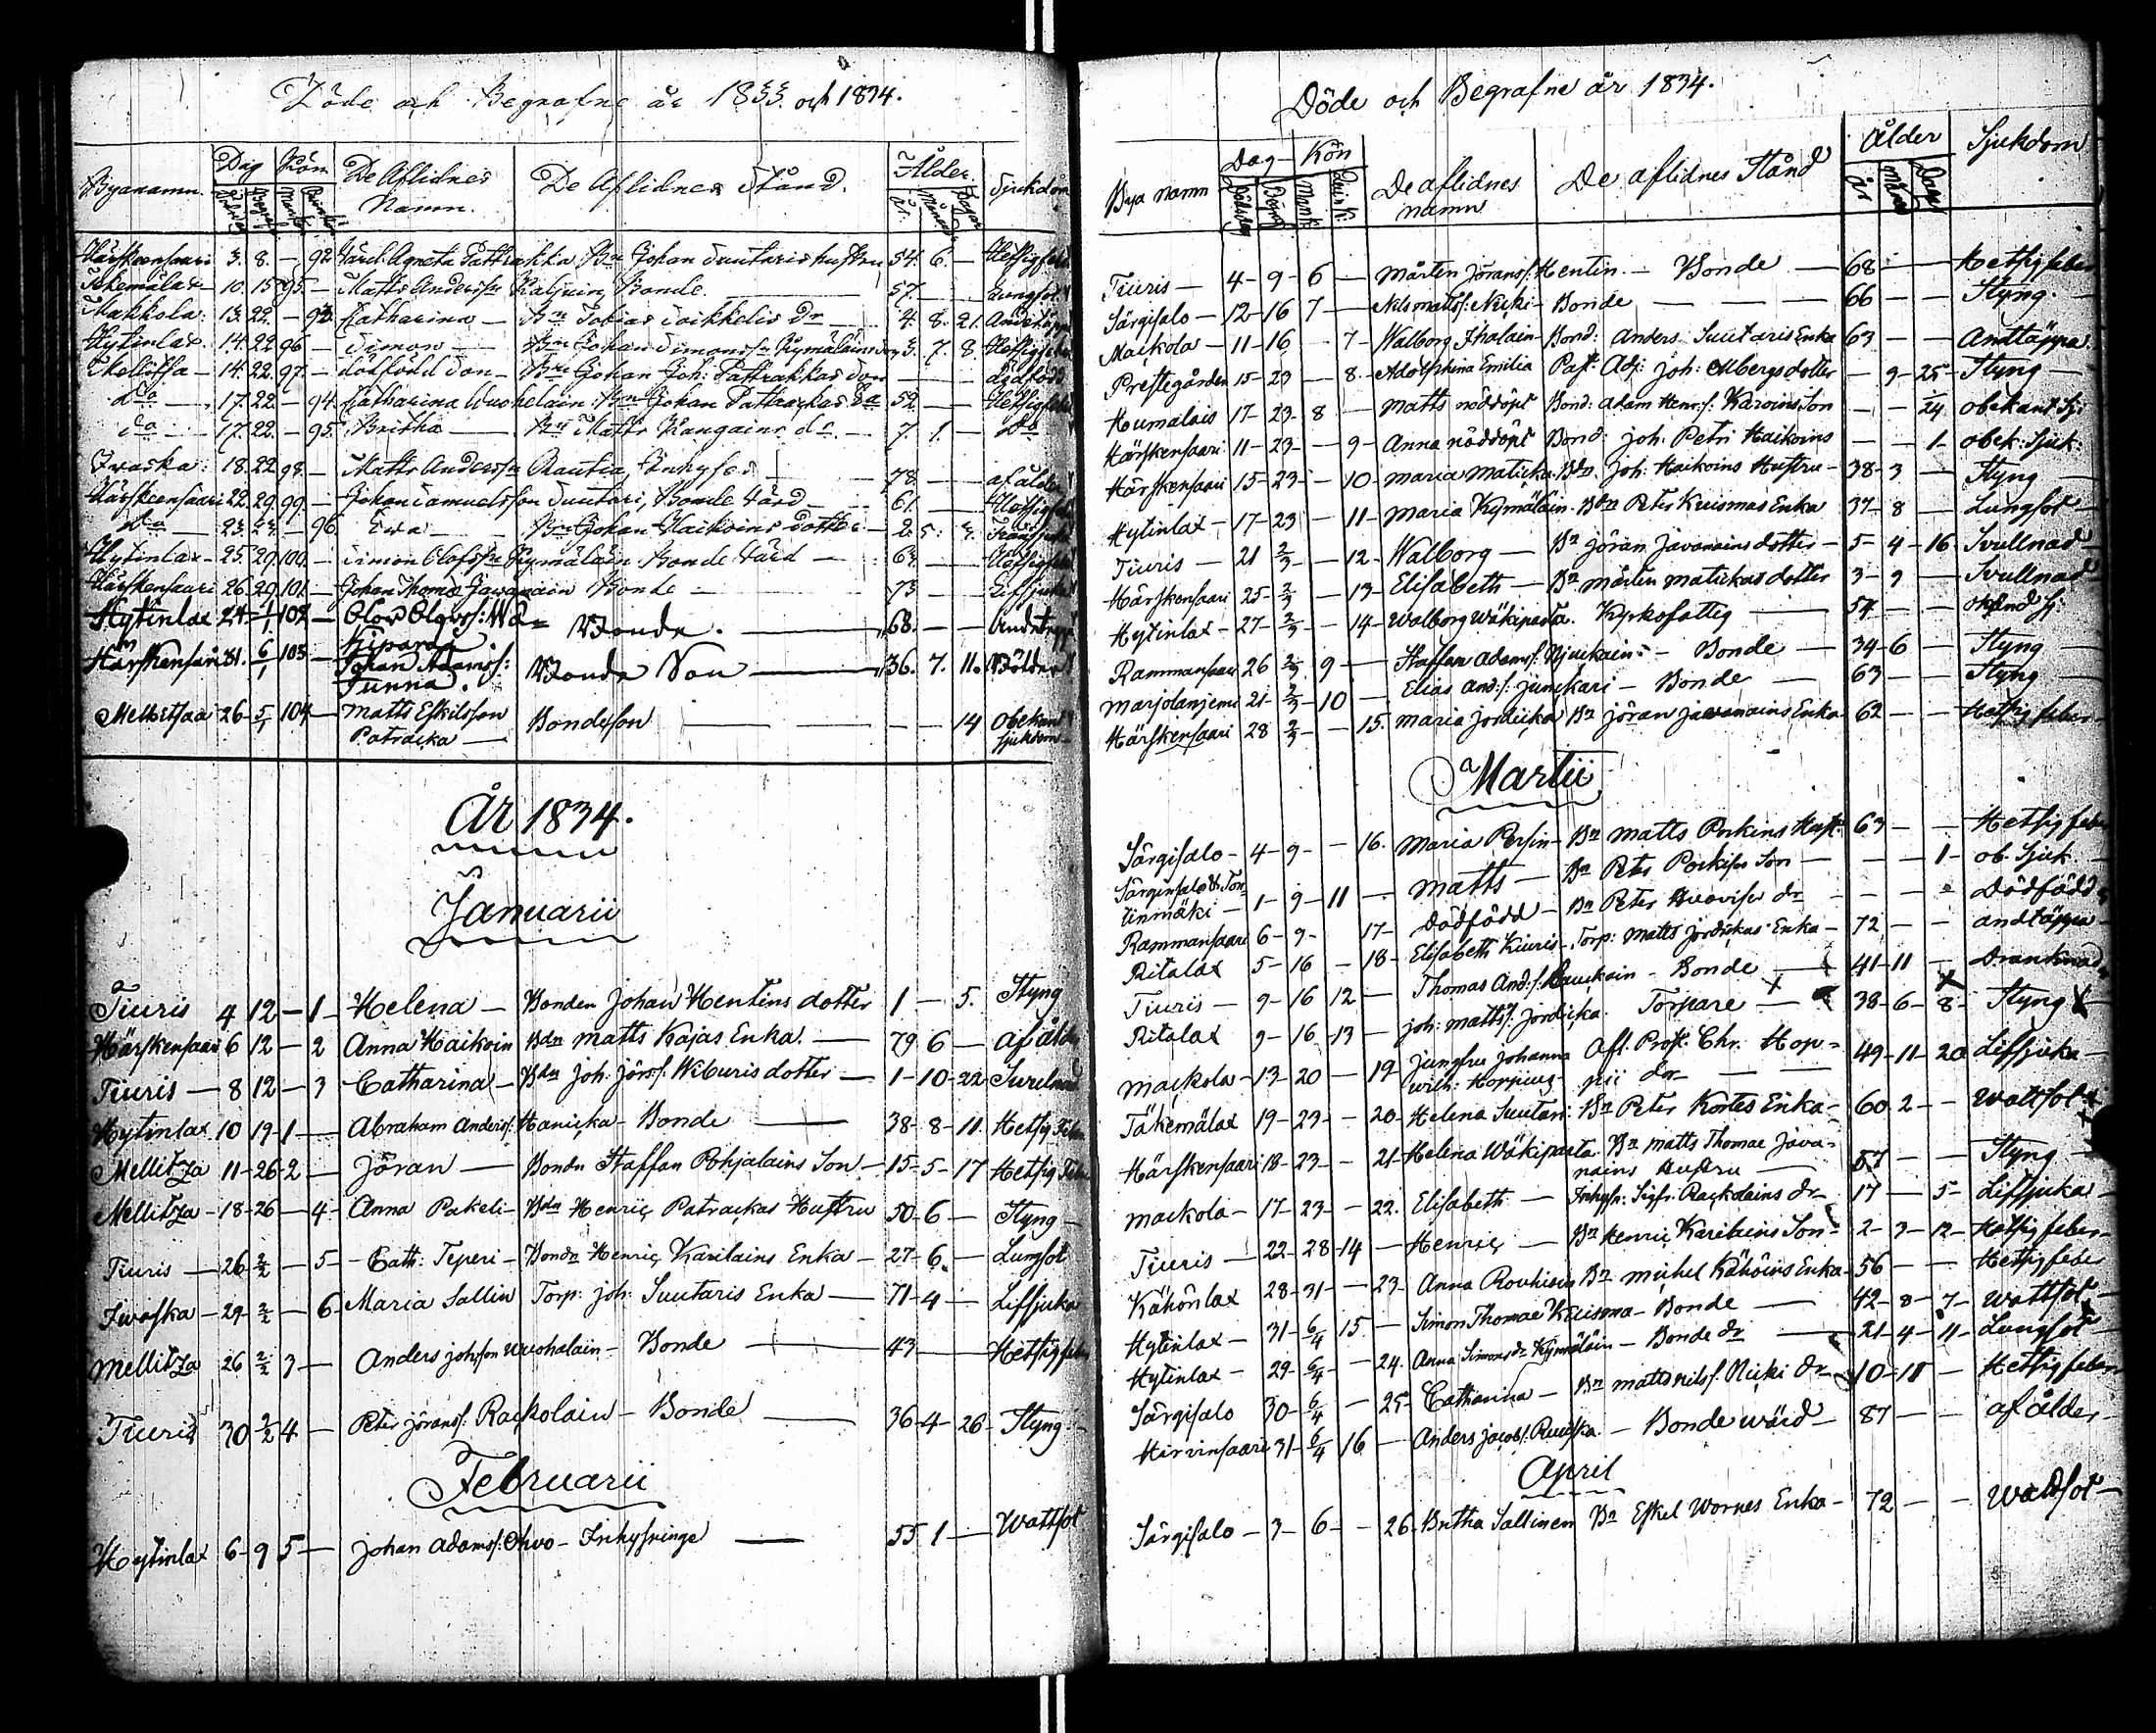 Döde och Begrafne år 1833 och 1834.
Byanamn. Dag Kön De Aflidnes Namn. De Aflidnes Stånd. Ålder. Sjukdom
Härskensaari 3. 8. — 92 Agneta Pattrakka Bn Johan Suutaris hustru 54. 6. — Hetsigfeber
10. 15 95 — Matts Andersson Bonde 57. — — Lungsot
Makkola 13. 22. — 93 Catharina — Bn Tobias Dr 4. 8. 21. Andtäppa
Hytinlax 14. 22 96 — Simon — Bn Johan Simonss. Kymäläins son 3. 7. 8. Hetsigfeber
Mellitsa — 14. 22. 97. — dödfödd Son — Bn Johan Joh: Pattrakkas Son — — — dödfödd
Do — 17. 22. — 94 Catharina Wuohelain Bn Johan Patrackas 52. — — Hetsigfeber
do — 17. 22. — 95 Britha — Bn Matts Kangains dr. — 7. 1. — Do
Iwaska 18. 22 98. — Matts Andersson Rautia, Inhyses 78. — — af ålder
Härskensaari 22. 29. 99. — Johan Samuelsson Suutari, Bonde Värd — 61. — — Hetsigfeber
Do — 23. — 96 Ewa — Bn Johan Haikoins dotter — 2. 5.
Hytinlax 25. 29. 100. — Simon Olofsson Kymäläin Bonde Värd — 63. — — Hetsigfeber
Härskensaari 26. 29. 101. — Johan Thomæ Jawanain Bonde — 73 — — Lifsjuka
Hytinlax 24 1/1 102 — Olov Olovs: Wä=
kiparta. Bonde. — 68. — — Andtepp
Härskensaari 31. 6/1 103 — Johan Adamss:
Tunna. Bonde Son — 36. 7. 11. Bölder
Mellitsaa 26 5/1 104 — Matts Eskilsson
Patracka — Bondeson — — 14 obekant
sjukdom
År 1834.
Januarii
Tiuris 4 12 — 1 — Helena — Bonden Johan Hentins dotter 1 — 5. Styng
Härskensaari 6 12 — 2 Anna Haikoin Bdn Matts Kajas Enka. — 79 6 — af ålder
Tiuris — 8 12 — 3 — Catharina — Bdn joh: jörss: Wiburis dotter — 1 — 10 — 22 Svullnad
Hytinlax 10 19 1 — Abraham Anderss: Hanicka — Bonde — 38 — 8 — 11. Hetsig Feber
Mellitza 11 — 26 2 — Jöran — Bondn Staffan Pohjalains Son — 15 — 5 — 17 Hetsig Feber
Mellitza — 18 — 26 — 4 — Anna Pakeli — Bdn Henric Patrackas Hustru 50 — 6 — Styng —
Tiuris — 26 2/2 — 5 — Cath: Teperi — Bondn Henric Karilains Enka — 27 — 6. — Lungsot
Iwaska — 29 — 2/2 — 6 Maria Sallin Torp: joh: Suutaris Enka — 71 — 4 — Lifsjuka
Mellitza 26 2/2 3 — Anders johsson Wuohalain — Bonde — 43 — Hetsigfeber
Tiuris 30 2/2 4 — Peter jöranss: Rackolain — Bonde — 36 — 4 — 26 — Styng —
Februarii
Hytinlax 6 — 9 5 — Johan Adamss: Ohvo — Inhysninge — 55 1 — Wattsot
Döde och Begrafne år 1834.
Bya namn Dag Kön De aflidnes namn De aflidnes Stånd Ålder Sjukdom
Tiuris — 4 — 9 — 6 — Mårten Jöranss: Hentin — Bonde — 68 — — Hetsig feber
Särgisalo — 12 — 16 7 — Nils mattss: Nicki — Bonde — 66 — — Styng. —
Mackola — 11 — 16 — 7 — Walborg Ihalain — Bond: Anders Suutaris Enka 63 — — Andtäppa
Prestegården 15 — 23 — 8. — Adolphina Emilia Past: Adj: joh: Albergs dotter — 9 — 25 — Styng —
Humalais 17 — 23 — 8 — Matts nöddöpt Bond: Adam Henrs: Karoins Son — — 1/24 obekant Sj:
Härskensaari 11 — 23 — 9 — Anna nöddöpt Bond: joh: Petri Haikoins — — 1 — obek: Sjuk:
Härskensaari 15 — 23 — 10 — Maria Maticka Bdn. joh: Haikoins Hustru — 38 — 3 — Styng
Hytinlax — 17 — 23 — 11 — Maria Kymäläin Bdn Peter Kuismas Enka 37 — 8 — Lungsot —
Tiuris — 21 2/3 — 12 — Walborg — Bn jöran Javanains dotter — 5 — 4 — 16 Svullnad —
Härskensaari 25 — 2/3 — 13 — Elisabeth — Bn mårten matickas dotter 3 — 9 — Svullnad
Hytinlax — 27 — 2/3 — 14 — Walborg Wäkiparta. Kyrkofattig — 54 — — okänd Sj:
Rammansaari 26 2/3 9 — Staffan Adamss: Njuckain — Bonde — 34 — 6 — Styng —
Marjolanjemi 21 — 2/3 — 10 — Elias And:s: junckari — Bonde — 63 — — Styng —
Härskensaari 28 2/3 — — 15. Maria Jordicka Bn jöran javanains Enka — 62 — — Hetsig feber —
Martii
Särgisalo — 4 — 9 — — 16. Maria Persin — Bn matts Porkins Hust: 63 — — Hetsig feber
Särginsalo & Ton=
tinmäki — 1 — 9 — 11 — Matts — Bn Peter Porkiss Son — — — 1 — ob. Sjuk —
Rammansaari 6 — 9 — 17 — Dödfödd — Bn Peter dr — — — Dödfödd
Ritalax 5 — 16 — 18 — Elisabeth Kiuris — Torp: Matts jordickas Enka — 72 — — andtäppa —
Tiuris — 9 — 16 12 — Thomas And:s: Rauckain — Bonde — 41 — 11 — Drunknad
Ritalax 9 — 16 — 13 — joh: mattss: jordicka. Torpare — 38 — 6 — 8 — Styng
Mackola — 13 — 20 — 19 — jungfru Johanna Afl. Prost. Chr. Hop=
wilh: Hoppius — pii dr — 49 — 11 — 20 Lifsjuka —
Täkemälax 19 — 23 — — 20 — Helena Suutari Bn Peter Kortes Enka — 60 2 — — Wattsot
Härskensaari 18 — 23 — — 21 — Helena Wäkiparta Bn matts Thomæ java=
nains Hustru — 57 — — Styng —
Mackola — 17 — 23 — — 22. Elisabeth — Inhys: Sigfr: Rackolains dr — 17 — 5 — Lifsjuka —
Tiuris — 22 — 28 — 14 — Henric — Bn Henric Karilains Son — 2 — 3 — 12 — Hetsig feber —
Kähönlax 28 — 31 — 23 — Anna Rouhiain Bn michel Kähöins Enka 56 — — Hetsig feber
Hytinlax — 31 — 6/4 15 — Simon Thomæ Kuisma — Bonde — 42 — 8 — 7 — Wattsot —
Hytinlax — 29 — 6/4 — 24. Anna Simonsdr Kymäläin — Bonde dr — 21 — 4 — 11 — Lungsot —
Särgisalo 30 — 6/4 — 25 — Catharina — Bn matts nilss: Nicki Dr — 10 — 11 — Hetsig feber
Hirvinsaari 31 — 6/4 16 — Anders jacobs: — Bonde wärd — 87 — — af ålder —
April
Särgisalo — 3 — 6 — — 26. Britha Sallinen Bn Eskel Wornes Enka — 72 — — Wattsot —